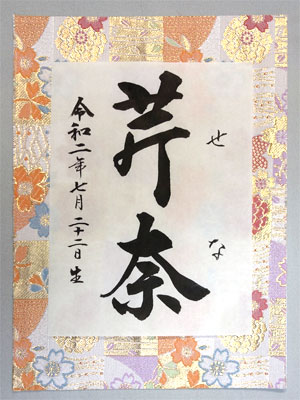 せな
芹奈
令和二年七月二十二日生